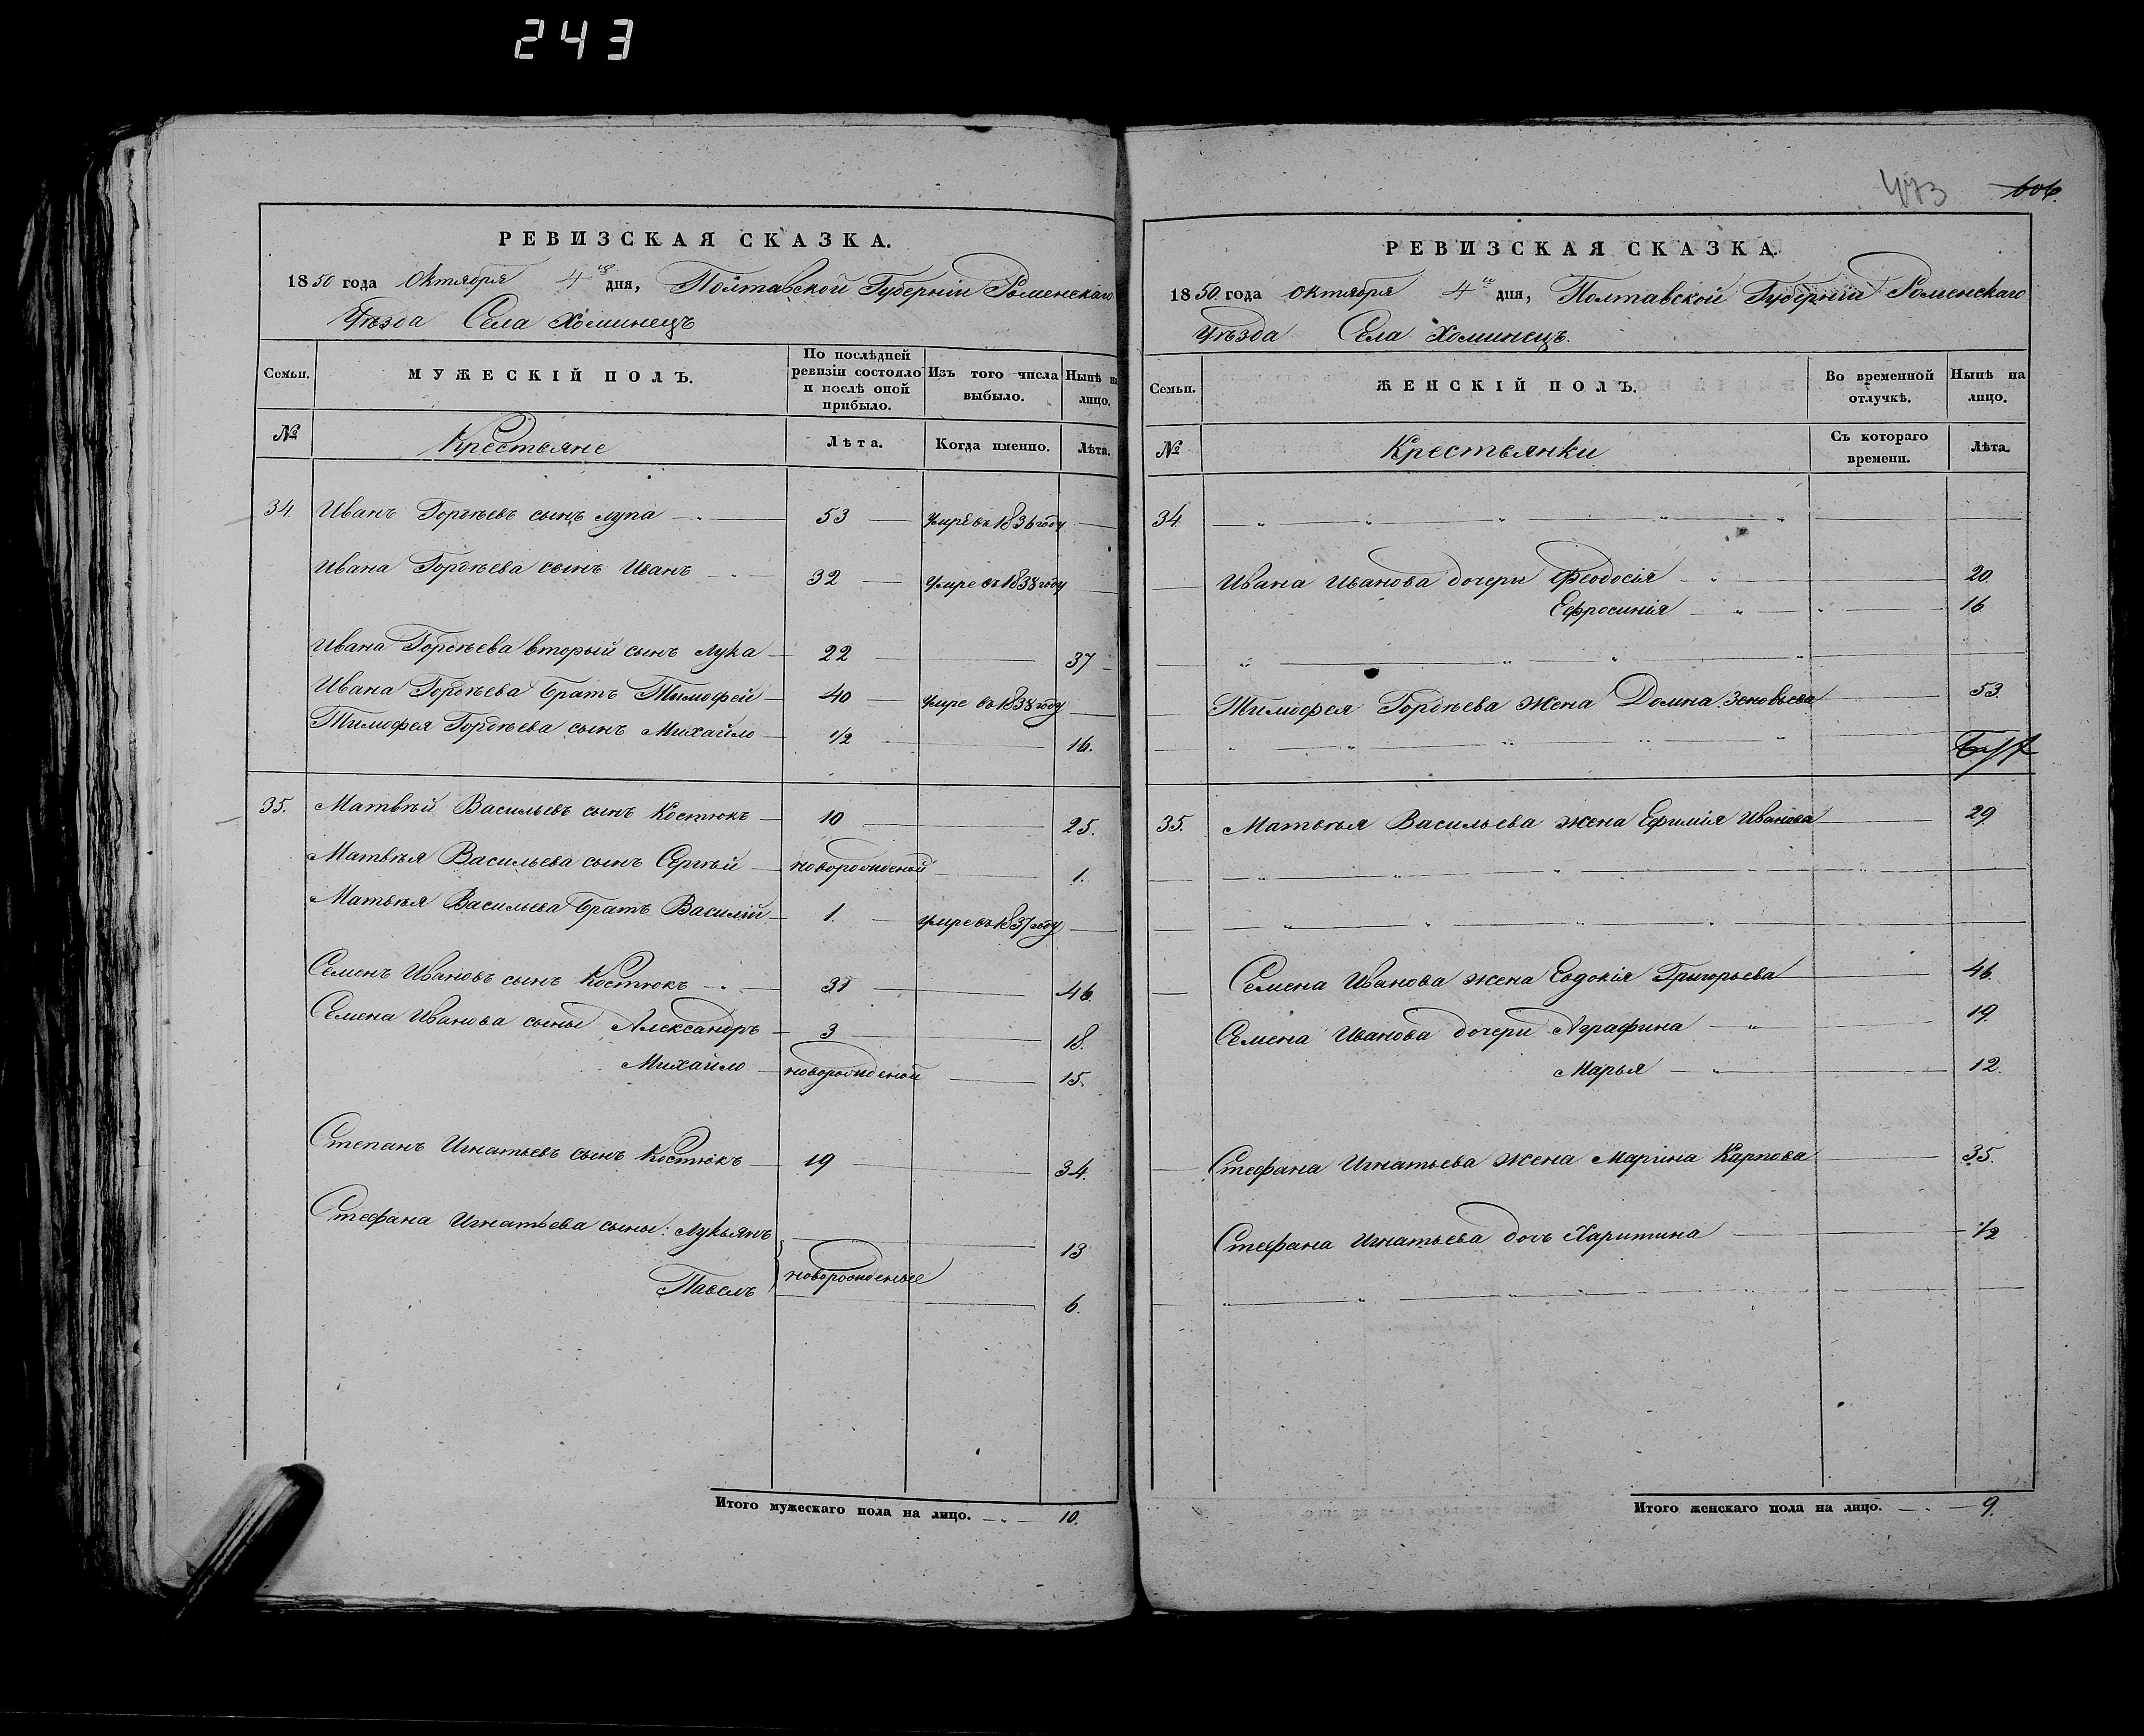 243
РЕВИЗСКАЯ СКАЗКА.
1850 года Октября 4го дня, Полтавской Губерніи Роменскаго
Уѣзда Села Хоминецъ
Семьи. МУЖЕСКІЙ ПОЛЪ. По послѣдней ревизіи состояло и послѣ оной прибыло. Изъ того числа выбыло. Нынѣ на лицо.
№ Крестьяне Лѣта. Когда именно. Лѣта.
34. Иванъ Гордѣевъ сынъ Лупа 53 умре въ 1836 году
Ивана Гордѣева сынъ Иванъ 32 умре въ 1838 году
Ивана Гордѣева вторый сынъ Лука 22 37
Ивана Гордѣева братъ Тимофей 40 умре въ 1838 году
Тимофея Гордѣева сынъ Михайло 1/2 16.
35. Матвѣй Васильевъ сынъ Костюкъ 10 25.
Матвѣя Васильева сынъ Сергѣй новорожденый 1.
Матвѣя Васильева братъ Василій 1. умре въ 1837 году
Семенъ Ивановъ сынъ Костюкъ 31 46.
Семена Иванова сыны Александръ 3 18.
Михайло новорожденой 15.
Степанъ Игнатьевъ сынъ Костюкъ 19 34.
Стефана Игнатьева сыны: Лукьянъ 13
Павелъ новорожденые 6.
Итого мужескаго пола на лицо. 10.
473 606.
РЕВИЗСКАЯ СКАЗКА.
1850 года Октября 4го дня, Полтавской Губерніи Роменскаго
Уѣзда Села Хоминецъ.
Семьи. ЖЕНСКІЙ ПОЛЪ. Во временной отлучкѣ. Нынѣ на лицо.
№ Крестьянки Съ котораго времени. Лѣта.
34.
Ивана Иванова дочери Феодосія 20.
Ефросинія 16
Тимофея Гордѣева жена Домна Зеновьева 53.
35. Матвѣя Васильева жена Ефимія Иванова 29.
Семена Иванова жена Евдокія Григорьева 46.
Семена Иванова дочери Аграфина 19.
Марья 12.
Стефана Игнатьева жена Марина Карпова 35.
Стефана Игнатьева дочь Харитина 1/2
Итого женскаго пола на лицо. 9.